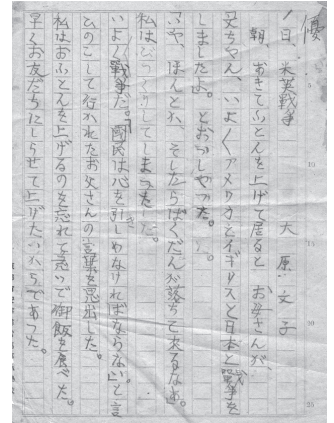 優
日米英戰爭
大原文子
朝、おきてふとんを上げて居ると お母さんが、
文ちやん、いよ〱アメリカとイギリスと日本と戰爭を
しましたよ。とおつしやつた。
や、ほんとか、そしたらばくだんが落ちて來るなあ。
私はびつくりしてしまつた。
いよ〱戰爭だ。「國民は心を引きしめなければならない」と言
ひのこして行かれたお父さんの言葉を思出した。
私はおふとんを上げるのを忘れて急いで御飯を食べた。
早くお友だちにしらせて上げたいからであつた。